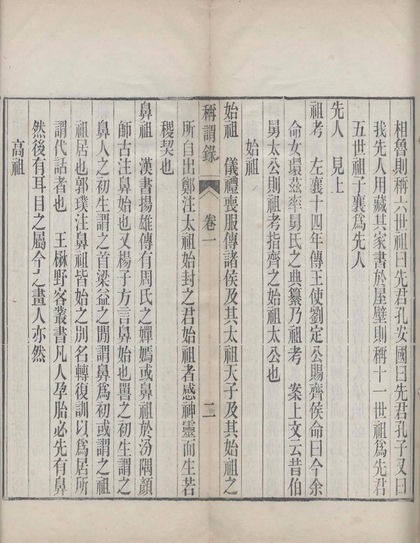 相魯則稱六世祖曰先君孔安國曰先君孔子又曰
我先人用藏其家書於屋壁則稱十一世祖爲先君
五世祖子襄爲先人
先人　見上
祖考　左襄十四年傳王使劉定公賜齊侯命曰今余
命女環茲率舅氏之典纂乃祖考　案上文云昔伯
舅太公則祖考指齊之始祖太公也
始祖
始祖　儀禮喪服傳諸侯及其太祖天子及其始祖之
稱謂錄　卷一　二
所自出鄭注太祖始封之君始祖者感神靈而生若
稷契也
鼻祖　漢書揚雄傳有周氏之嬋嫣或鼻祖於汾隅顏
師古注鼻始也又楊子方言鼻始也嘼之初生謂之
鼻人之初生謂之首梁益之閒謂鼻爲初或謂之祖
祖居也郭璞注鼻祖皆始之別名轉復訓以爲居所
謂代語者也　王楙野客叢書凡人孕胎必先有鼻
然後有耳目之屬今之畫人亦然
高祖